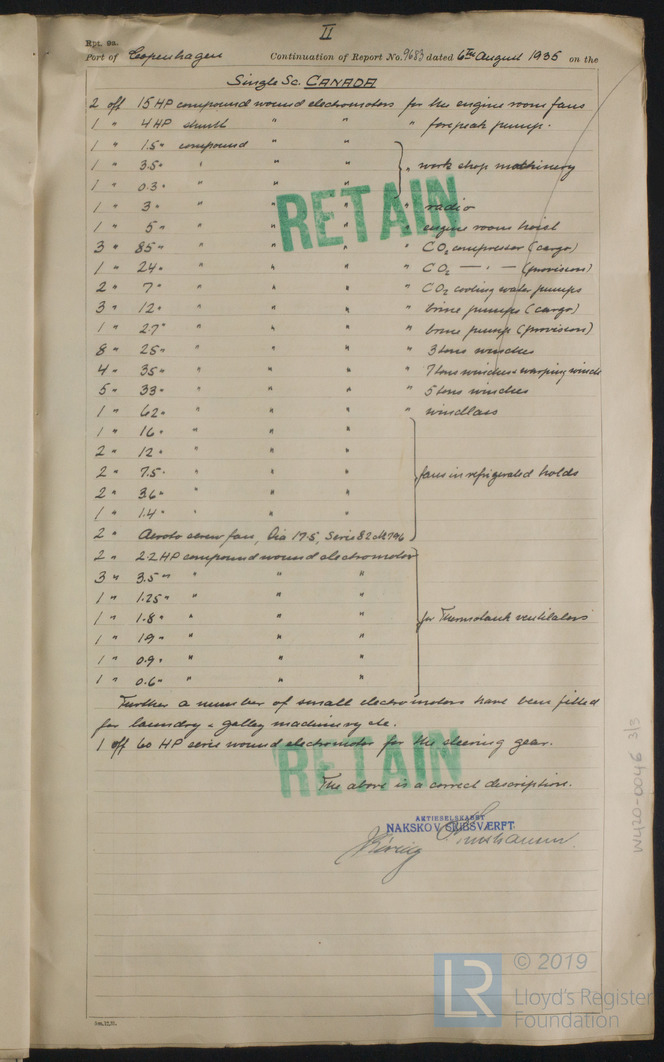 II
Rpt. 9a.
Port of Copenhagen Continuation of Report No. 9683 dated 6TH August 1935 on the
Single Sc. CANADA
2 off 15 HP compound wound electromotors for the engine room fans
1 " 4 HP shunt " " " forepeak pump.
1 " 1.5 " compound " "
1 " 3.5 " " " " " work shop machinery
1 " 0.3 " " " "
1 " 3 " " " " " radio
1 " 5 " " " " " engine room hoist
3 " 85 " " " " " CO2 compressor (cargo)
1 " 24 " " " " " CO2 — " — (provision)
2 " 7 " " " " " CO2 cooling water pumps
3 " 12 " " " " " brine pumps (cargo)
1 " 2.7 " " " " " brine pump (provision)
8 " 25 " " " " " 3 tons winches
4 " 35 " " " " " 7 tons winches & warping winch
5 " 33 " " " " " 5 tons winches
1 " 62 " " " " " windlass
1 " 16 " " " "
2 " 12 " " " "
2 " 7.5 " " " " fans in refrigerated holds
2 " 3.6 " " " "
1 " 1.4 " " " "
2 " screw fan, Dia 17.5, Serie
2 " 2.2 HP compound wound electromotor
3 " 3.5 " " " "
1 " 1.25 " " " "
1 " 1.8 " " " " for Thermotank ventilators
1 " 19 " " " "
1 " 0.9 " " " "
1 " 0.6 " " " "
Further a number of small electromotors have been fitted
for laundry & galley machinery etc.
1 off 60 HP serie wound electromotor for the steering gear.
The above is a correct description.
AKTIESELSKABET
NAKSKOV SKIBSVÆRFT
RETAIN
RETAIN
W420-0046 3/3
© 2019
LR
Lloyd's Register
Foundation